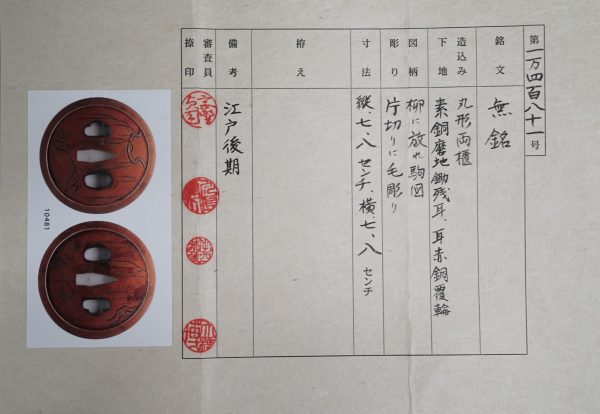 第一万四百八十一号
銘文 無銘
造込み 丸形両櫃
下地 素銅磨地鋤残耳、耳赤銅覆輪
図柄 柳に放れ駒図
彫り 片切りに毛彫り
寸法 縦、七、八センチ、横、七、八センチ
拵え
備考 江戸後期
審査員
捺印
10481